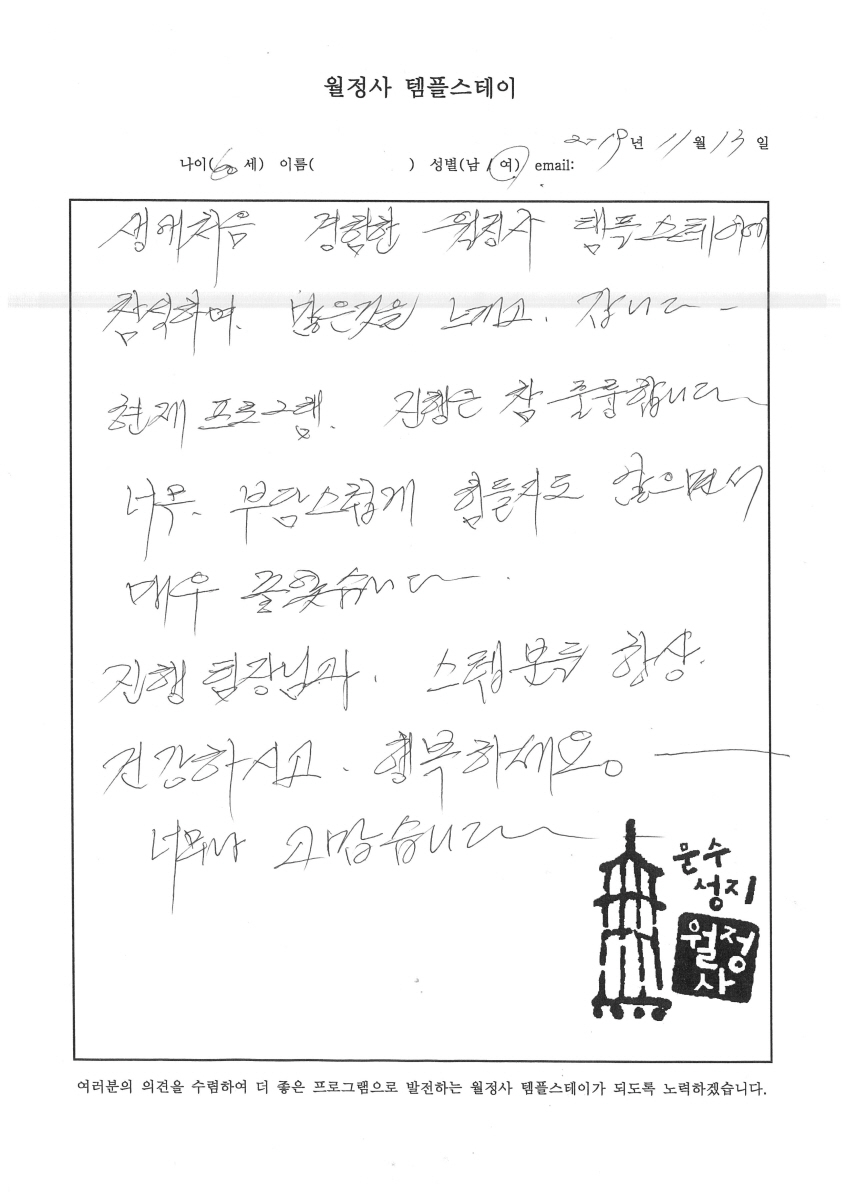 월정사 템플스테이
2019년 11월 13일
나이(60세) 이름( ) 성별(남/여) email:
생에처음 경험한 월정사 템플스테이에
참석하며. 많은것을 느끼고. 갑니다-
현재 프로그램. 진행은 참 훌륭합니다
너무. 부담스럽게 힘들지도 않으면서
매우 좋았습니다.
진행 팀장님과. 스텝분들 항상.
건강하시고. 행복하세요。
너무나 고맙습니다
문수
성지
월정
사
여러분의 의견을 수렴하여 더 좋은 프로그램으로 발전하는 월정사 템플스테이가 되도록 노력하겠습니다.